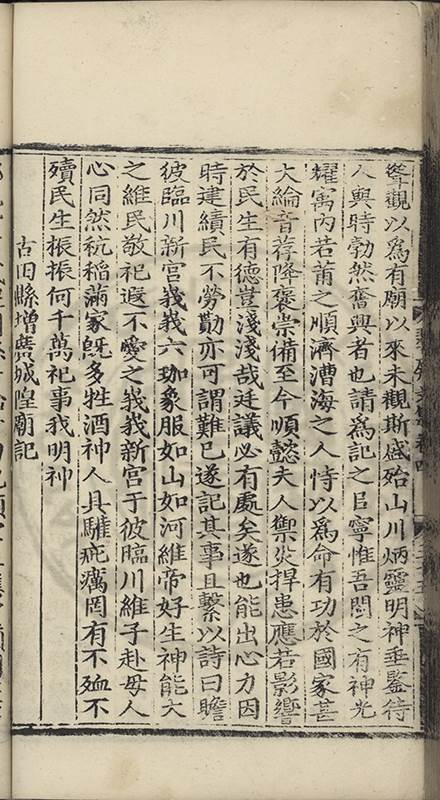 聳觀以為有廟以來未觀斯盛殆山川炳靈明神垂鍳待
人與時勃然奮興者也請為記之臣寧惟吾閩之有神光
耀寓內若莆之順濟漕海之人恃以為命有功於國家甚
大綸音荐降褒崇備至今順懿夫人禦災捍患應若影響
於民生有德豈淺淺哉廷議必有處矣遂也能出心力因
時建績民不勞勩亦可謂難已遂記其事且繫以詩曰瞻
彼臨川新宮峩峩六珈象服如山如河維帝好生神能大
之維民敬祀遐不愛之峩峩新宮于彼臨川維子赴母人
心同然秔稻滿家旣多牲酒神人具驩疵癘罔有不殈不
殰民生振振何千萬祀事我明神
古田縣增廣城隍廟記